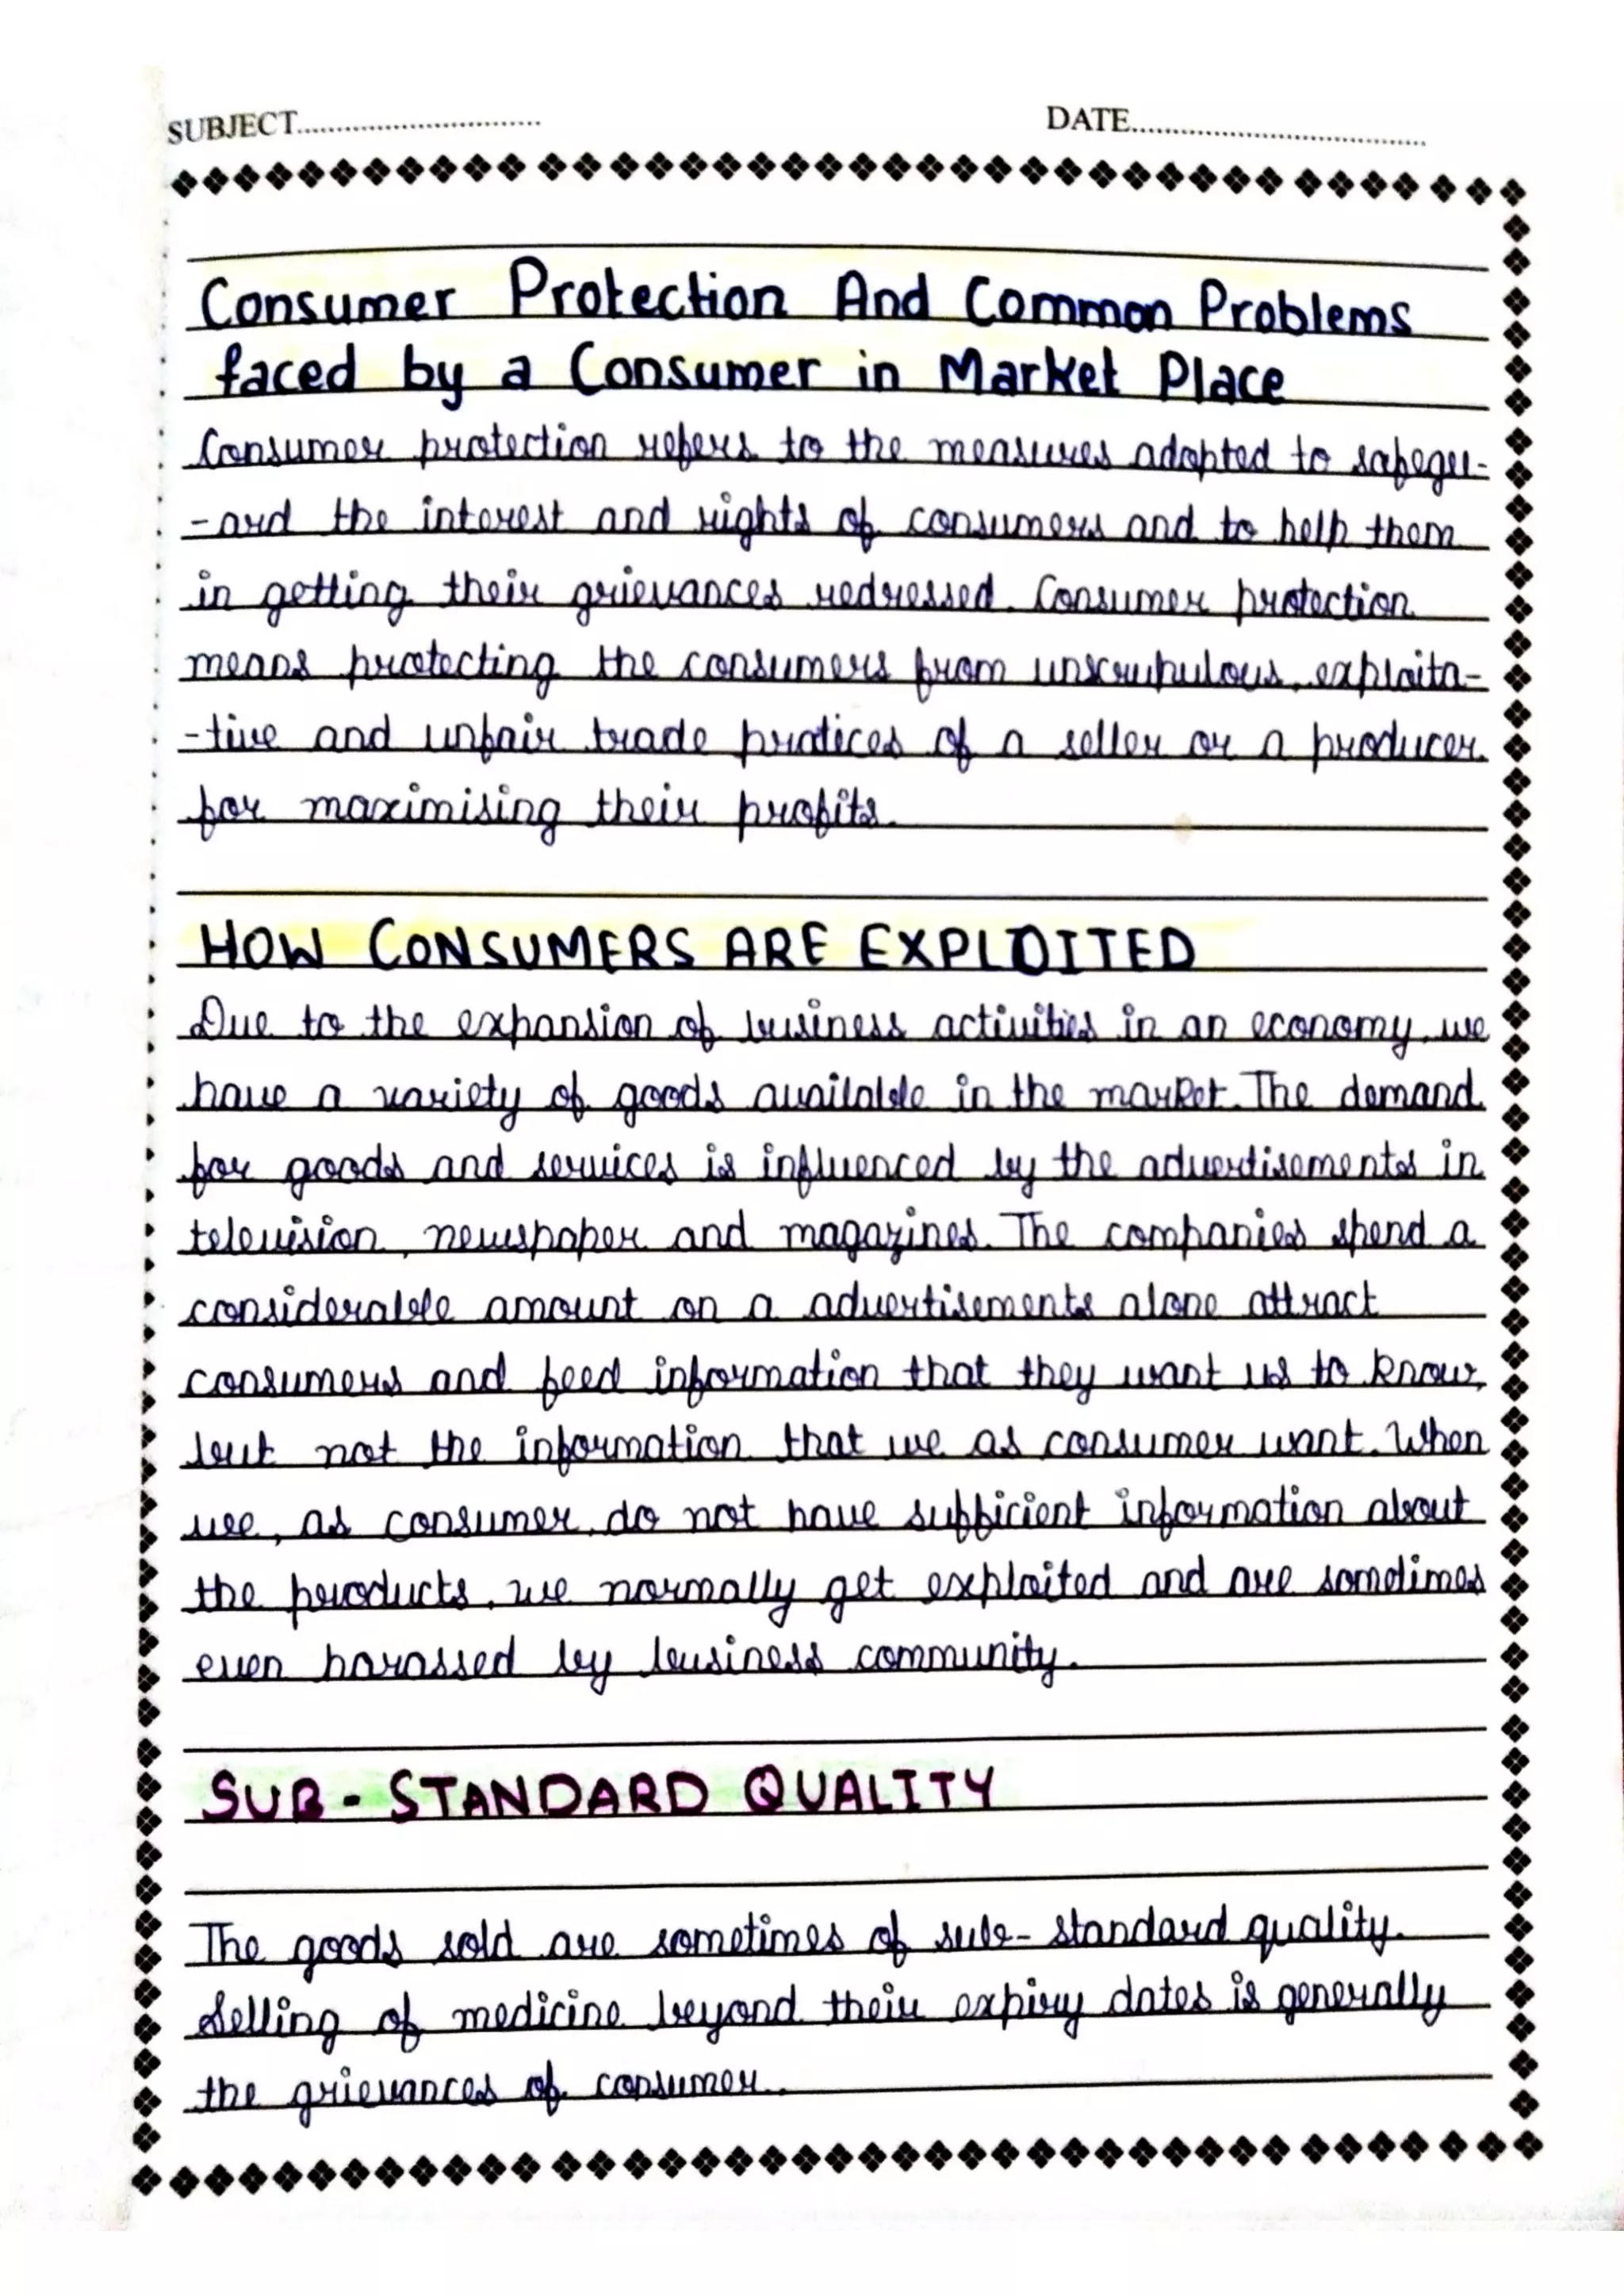 SUBJECT..............................
DATE....................................
Consumer Protection And Common Problems
faced by a Consumer in Market Place
Consumer protection refers to the measures adopted to safegu-
-ard the interest and rights of consumers and to help them
in getting their grievances redressed. Consumer protection
means protecting the consumers from unscruhulous, exploita-
-tive and unfair trade pratices of a seller or a producer
for maximising their profits.
HOW CONSUMERS ARE EXPLOITED
Due to the expansion of business activities in an economy, we
have a variety of goods available in the market. The demand
for goods and services is influenced by the advertisements in
television, newspaper and magazines. The companies spend a
considerable amount on a advertisements alone attract
consumers and feed information that they want us to know,
but not the information that we as consumer want. When
we, as consumer, do not have sufficient information about
the products, we normally get exploited and are sometimes
even harassed by business community.
SUB-STANDARD QUALITY
The goods sold are sometimes of sub-standard quality.
Selling of medicine beyond their expiry dates is generally
the grievances of consumer.